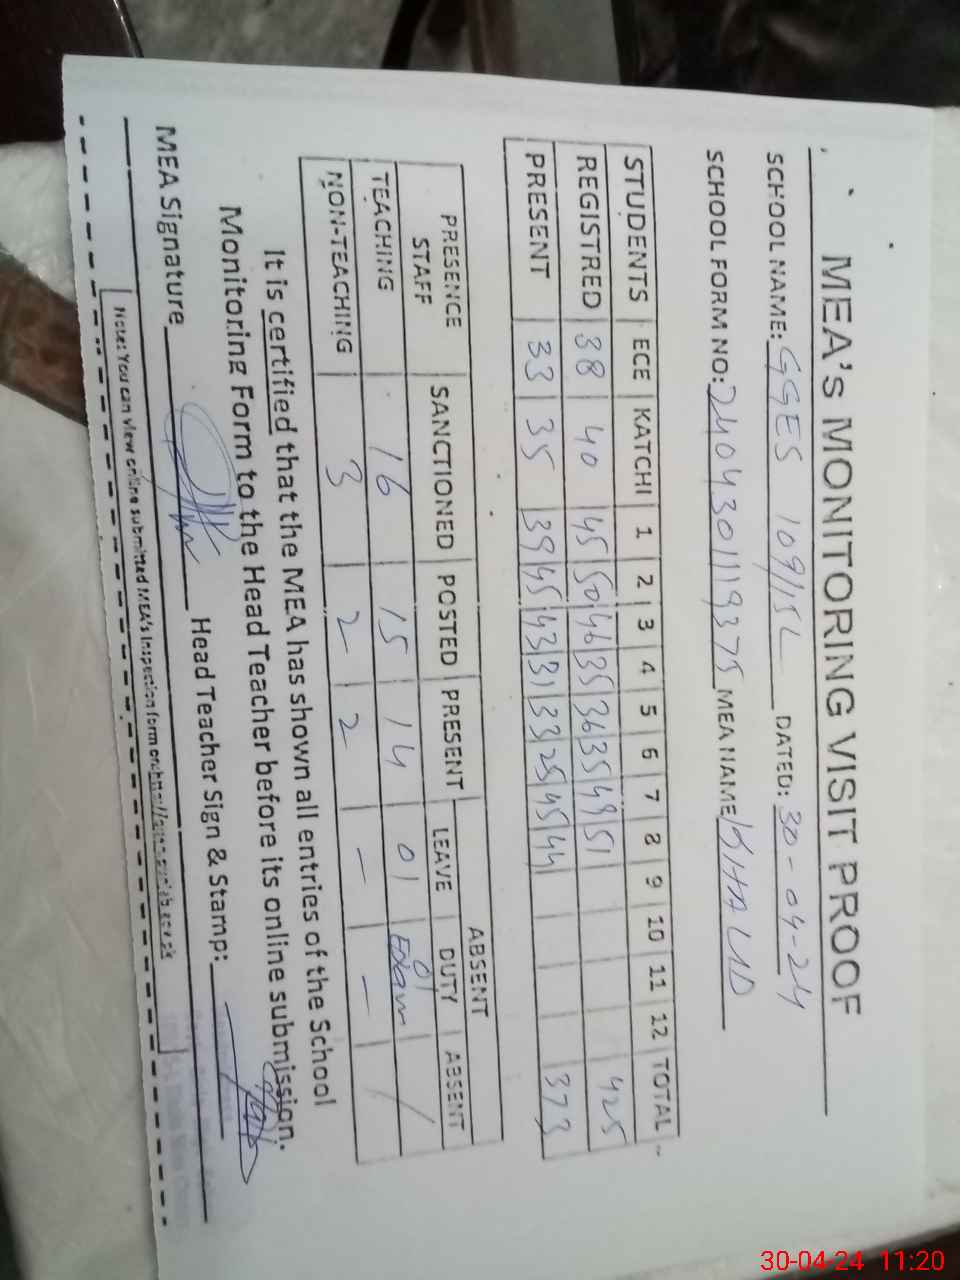 MEA's MONITORING VISIT PROOF
SCHOOL NAME: GGES 109/15L DATED: 30-04-24
SCHOOL FORM NO: 2404301119375 MEA NAME KHALID
STUDENTS ECE KATCHI 1 2 3 4 5 6 7 8 9 10 11 12 TOTAL
REGISTRED 38 40 45 50 46 35 36 35 49 51 425
PRESENT 33 35 39 45 43 31 33 25 45 44 373
PRESENCE STAFF SANCTIONED POSTED PRESENT ABSENT
LEAVE DUTY ABSENT
TEACHING 16 15 14 01 01 Exam /
NON-TEACHING 3 2 2 - -
It is certified that the MEA has shown all entries of the School
Monitoring Form to the Head Teacher before its online submission.
MEA Signature Head Teacher Sign & Stamp:
Note: You can view online submitted MEA's Inspection form on
30-04-24 11:20